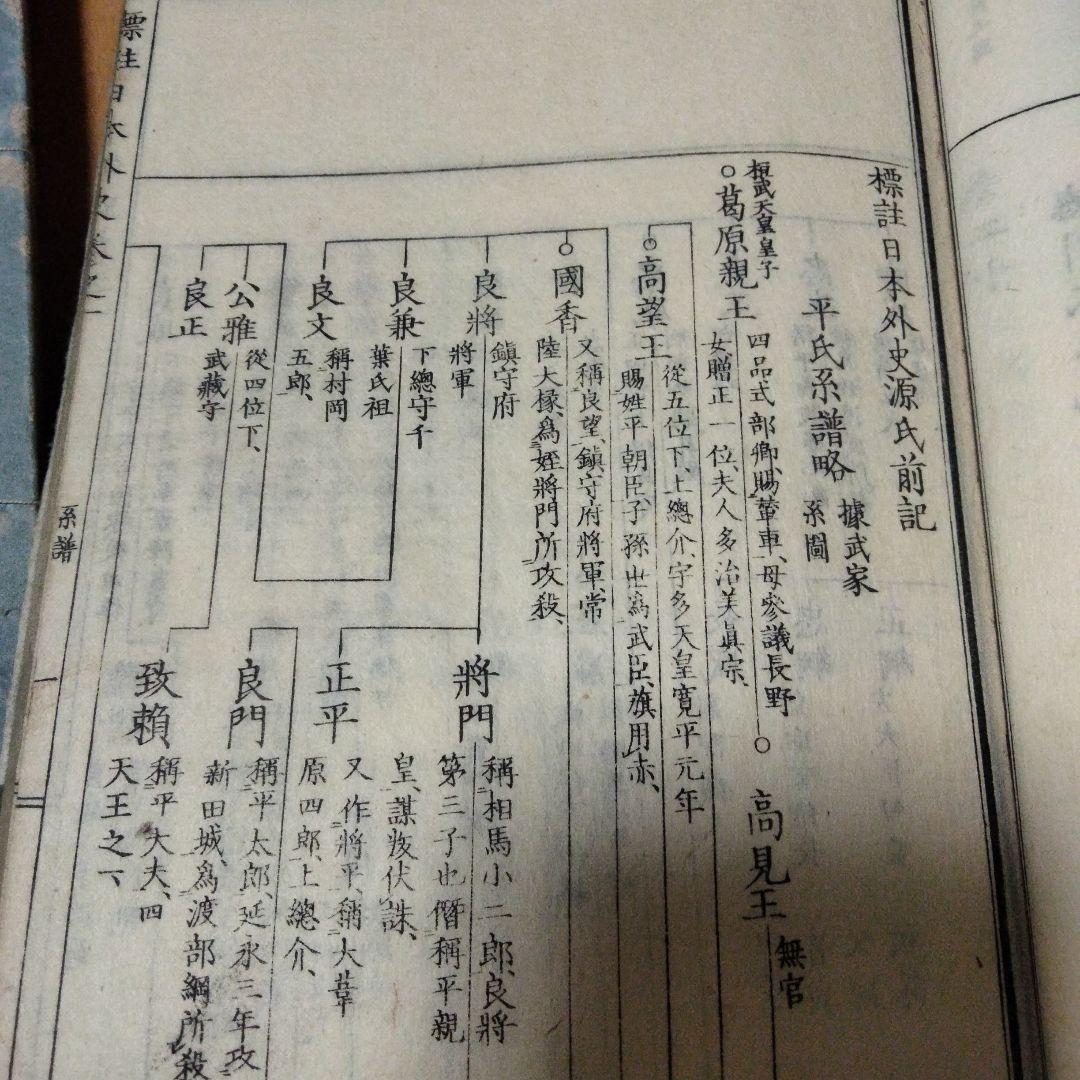 標註日本外史源氏前記
平氏系譜略
據武家
系圖
桓武天皇皇子
葛原親王
四品式部卿、賜輦車、母參議長野
女贈正一位、夫人多治美眞宗、
高見王
無官
高望王
從五位下、上總介、宇多天皇寬平元年
賜姓平朝臣、子孫世爲武臣旗用赤、
國香
又稱良望、鎮守府將軍、常
陸大掾、爲姪將門所攻殺、
良將
鎮守府
將軍
良兼
下總守千
葉氏祖
良文
稱村岡
五郎、
公雅
從四位下、
武藏守
良正
將門
稱相馬小二郎、良將
第三子也僭稱平親
皇、謀叛伏誅、
正平
又作將平、稱大葦
原四郎、上總介、
良門
稱平太郎、延永三年攻
新田城、爲渡部綱所殺
致賴
稱平大夫、四
天王之一
標註日本外史卷之一
系譜
一